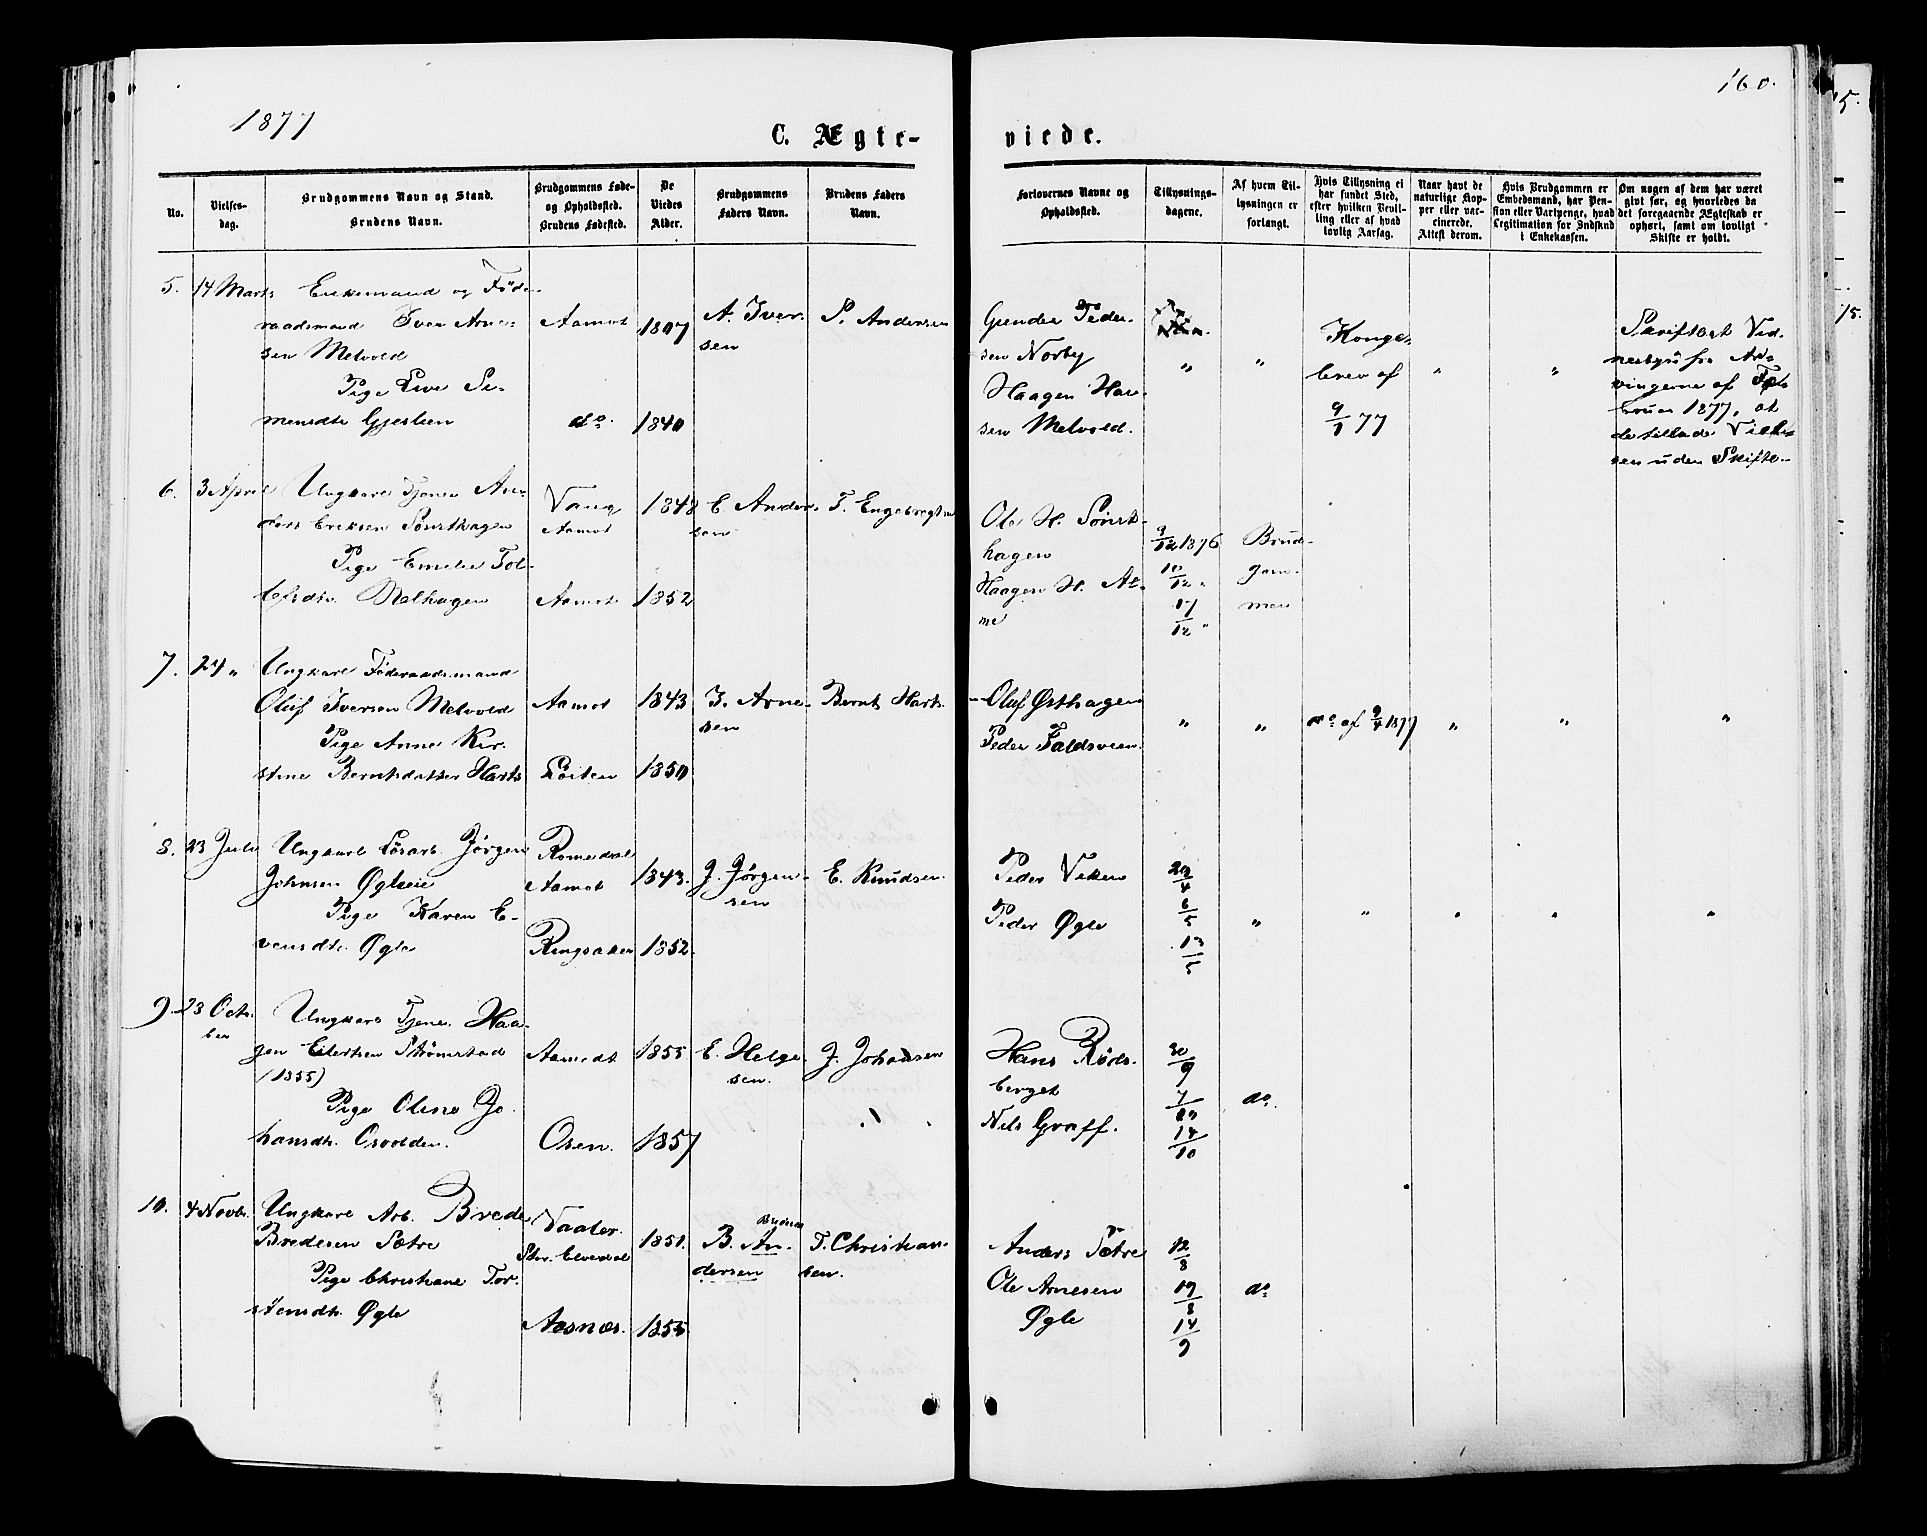 1877
160.
C. Ægte-
viede.
No.
Vielses-
dag.
Brudgommens Navn og Stand.
Brudens Navn.
Brudgommens Føde-
og Opholdssted.
Brudens Fødested.
De
Viedes
Alder.
Brudgommens
Faders Navn.
Brudens Faders
Navn.
Forlovernes Navne og
Opholdssted.
Tillysnings-
dagene.
Af hvem Til-
lysningen er
forlangt.
Hvis Tillysning ei
har fundet Sted,
efter hvilken Bevil-
ling eller af hvad
lovlig Aarsag.
Naar havt de
naturlige Kop-
per eller vac-
cinerede.
Attest derom.
Hvis Brudgommen er
Embedsmand, har Pen-
sion eller Vartpenge, hvad
Legitimation for Indskud
i Enkekassen.
Om nogen af dem har været
gift før, og hvorledes da
det foregaaende Ægteskab er
ophørt, samt om lovligt
Skifte er holdt.
5. 14 Marts
Enkemand og Føde-
raadsmand Iver Arne-
sen Melvold
Pige Live Si-
mensdtr Gjeslien
Aamot
do
1807
1840
A. Iver-
sen
S. Andersen
Gunder Peder-
sen Norby
Haagen Han-
sen Melvold.
" "
Konge-
brev af
9/1 77
" "
Skriftligt Vid-
nesbyrd fra Ar-
vingerne af Fe-
bruar 1877, at
de tillade Viel-
sen uden Skifte.
6. 3 April
Ungkarl Tjener An-
ders Eriksen Sønsthagen
Pige Emelie Tol-
lefsdtr. Melhagen
Vang
Aamot
Aamot
1848
1852
E. Ander-
sen
T. Engebregtsen
Ole H. Sønst-
hagen
Haagen H. Aa-
me
9/12 1876
10/12 "
17/12 "
Brud-
gom-
men
7. 24 "
Ungkarl Føderaadsmand
Oluf Iversen Melvold
Pige Anne Kir-
stine Berntsdatter Harts
Aamot
Løiten
1843
1850
I. Arne-
sen
Bernt Harts.
Oluf Østhagen
Peder Faldsveen
" "
do af 9/4 1877
" " "
8. 23 Juli
Ungkarl Løsarb. Jørgen
Johnsen Øgleeie
Pige Karen E-
vensdtr. Øgle
Romedal
Aamot
Ringsaker
1843.
1852.
J. Jørgen-
sen
E. Knudsen.
Peder Viken
Peder Øgle
29/4
6/5
13/5
" " " " "
9. 23 Octo-
ber
Ungkarl Tjener Haa-
gen Eilertsen Strømstad
(1855)
Pige Oline Jo-
hansdtr. Osvolden.
Aamodt
Osen.
1855
1857
E. Helge-
sen.
J. Johansen
Hans Røds-
berget
Nils Graff.
30/9
7/10
14/10
do.
10. 4 Novbr.
Ungkarl Arb. Brede
Bredesen Sætre
Pige Christiane Tor-
stensdtr. Øgle
Vaaler.
Stor-Elvedal
Aasnæs.
1851.
1855
B. An-
dersen
T. Christian-
sen.
Anders Sætre
Ole Arnesen
Øgle
12/8
19/8
14/9
do